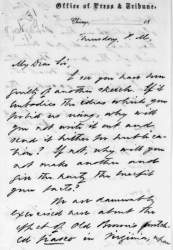 Office of Press & Tribune.
Chicago, 18
Thursday P.M.
My Dear Sir.
I see you have been
guilty of another speech. If it
embodies the ideas which you
forbid us using, why will
you not write it out and
send it hither for publica-
tion? If not, why will you
not make another and
give the party the benefit
your facts?
We are damnably
exercised here about the
effect of Old Brown's wretch-
ed fiasco in Virginia, upon